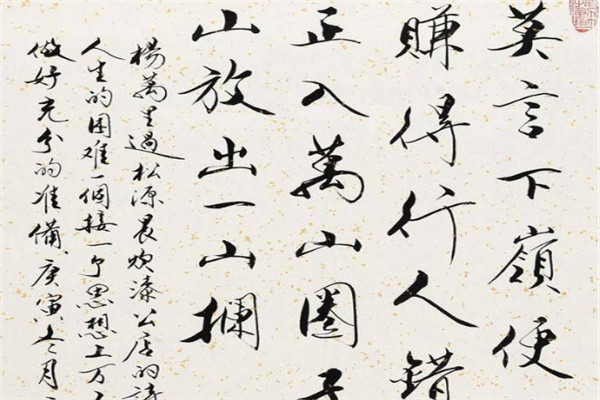 莫言下嶺便
賺得行人錯
正入萬山圈子
山放出一山攔
楊萬里過松源晨炊漆公店的詩
人生的困難一個接一个思想上万
做好充分的准備庚寅冬月